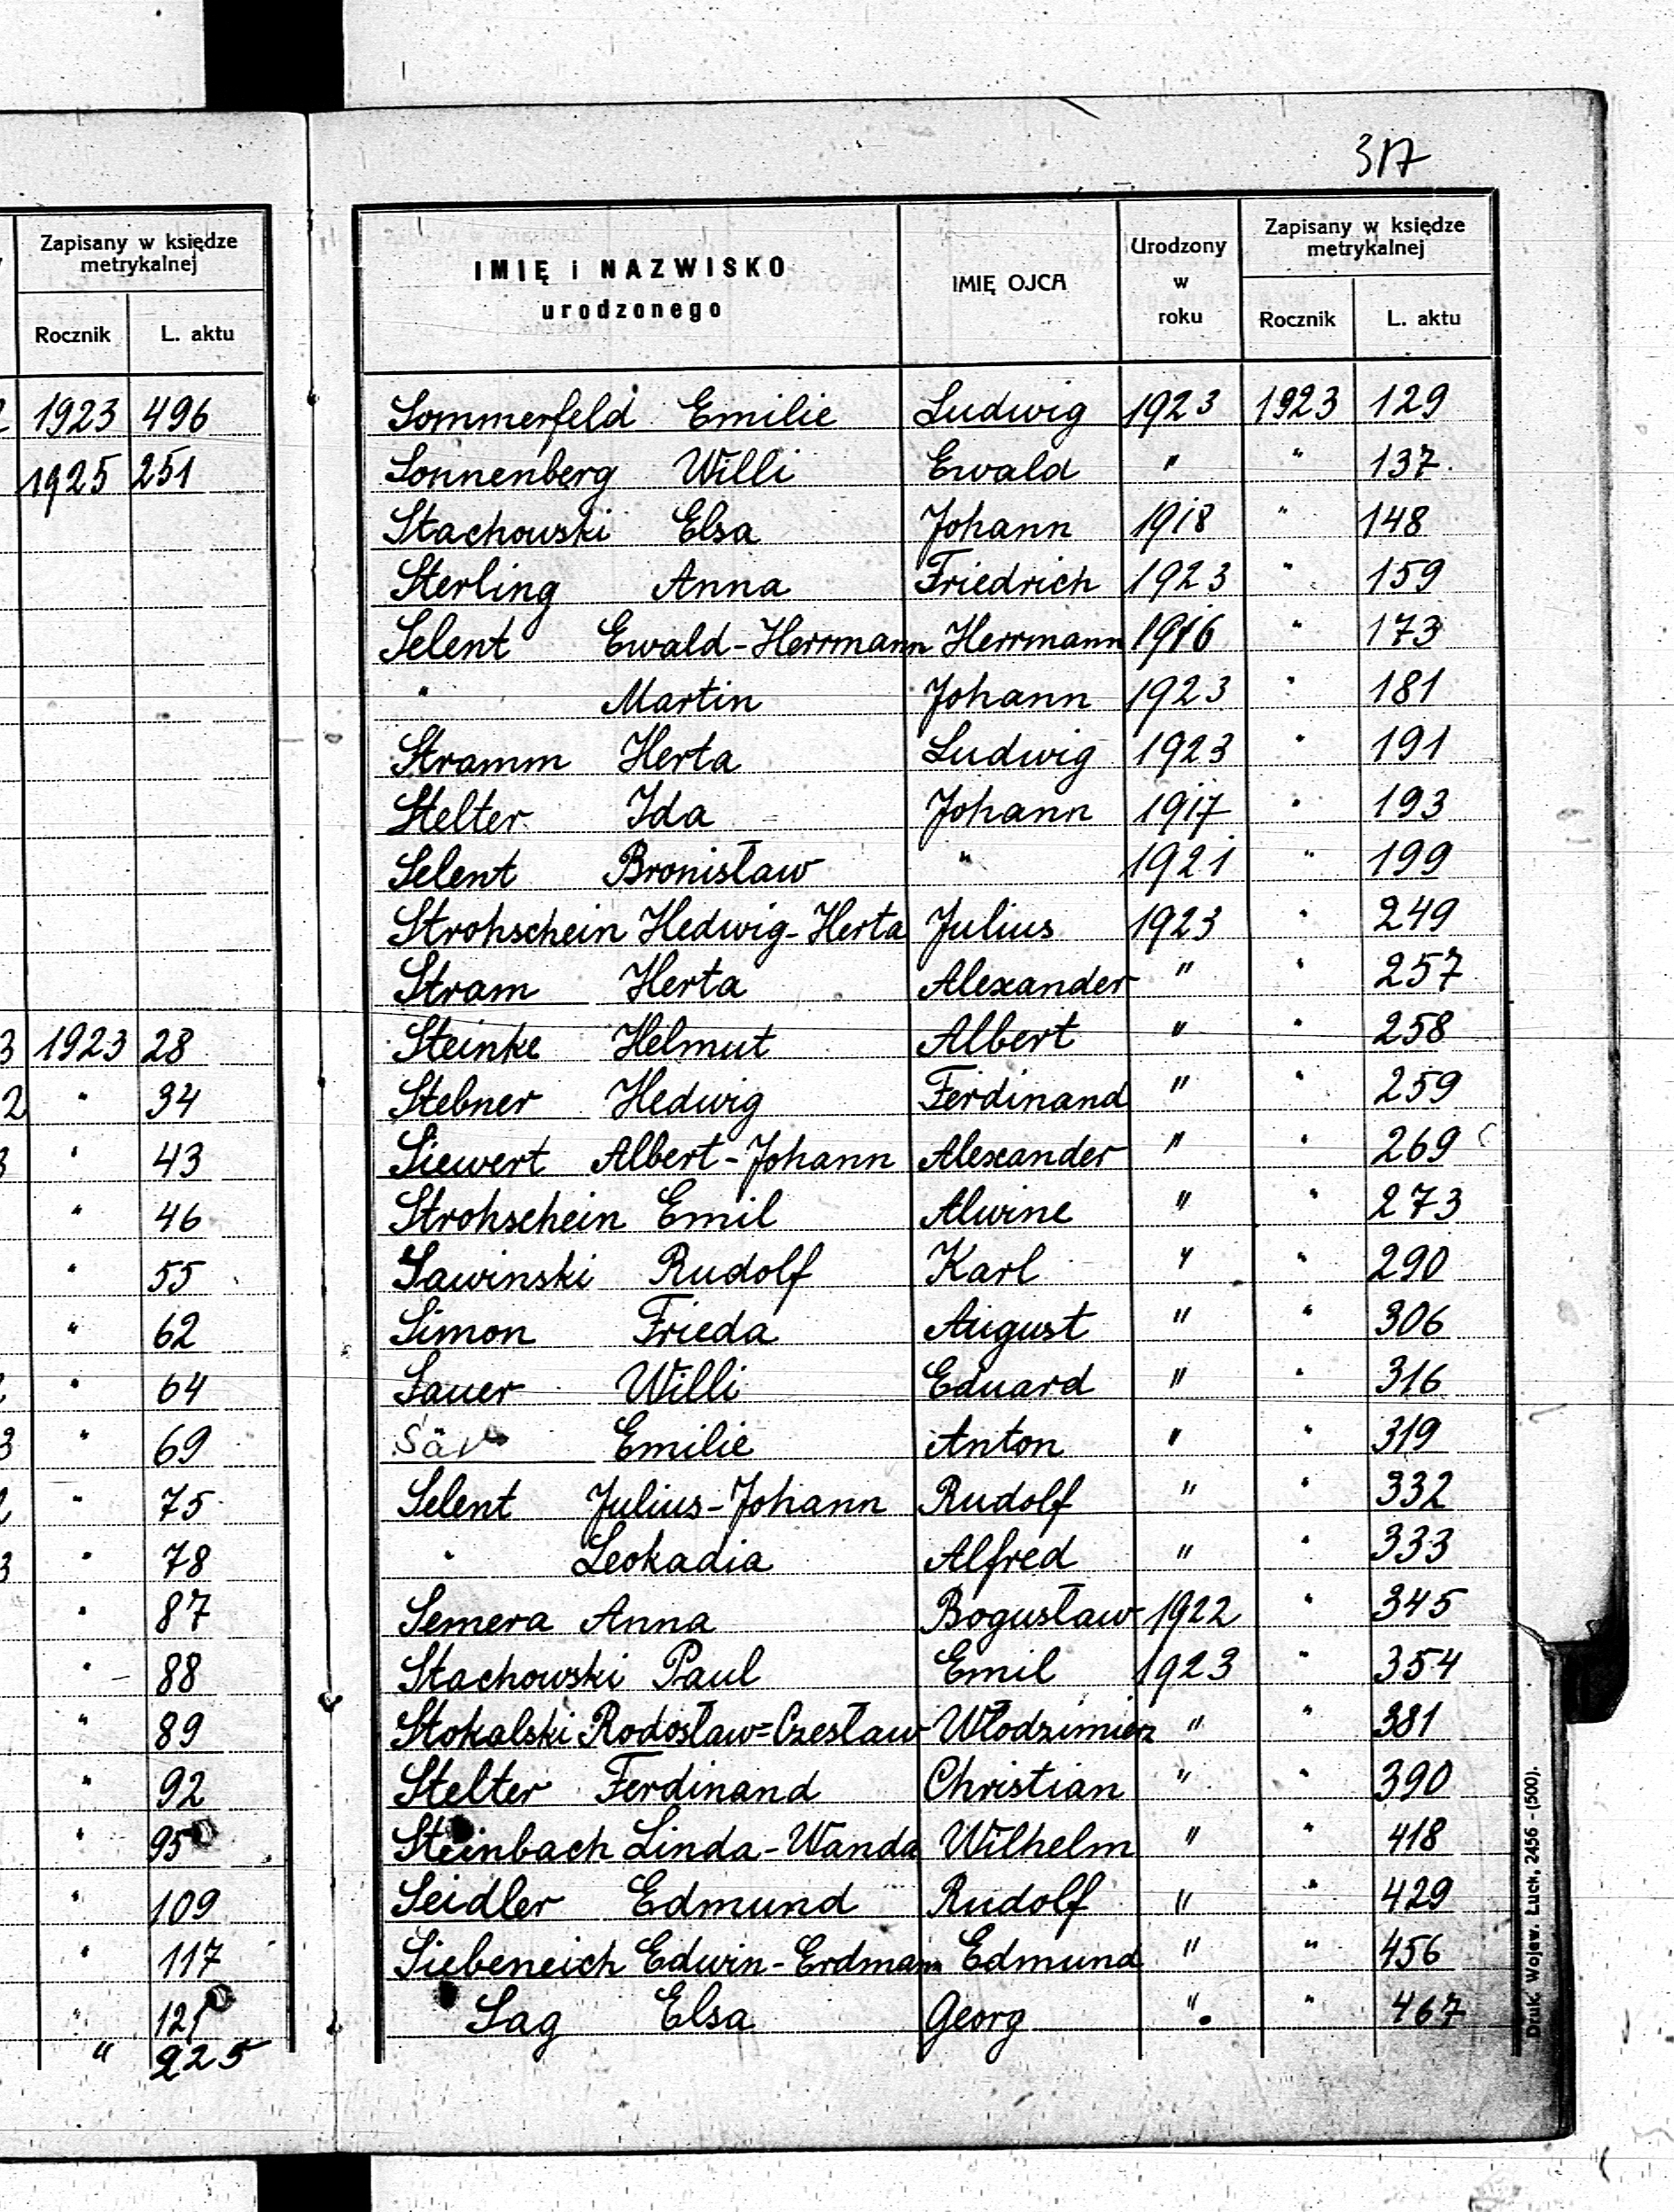 317
Zapisany w księdze
metrykalnej
Rocznik L. aktu
1923 496
1925 251
1923 28
" 34
" 43
" 46
" 55
" 62
" 64
" 69
" 75
" 78
" 87
" 88
" 89
" 92
" 95
" 109
" 117
" 121
" 225
IMIĘ i NAZWISKO
urodzonego
IMIĘ OJCA
Urodzony
w
roku
Zapisany w księdze
metrykalnej
Rocznik L. aktu
Sommerfeld Emilie Ludwig 1923 1923 129
Sonnenberg Willi Ewald " " 137
Stachowski Elsa Johann 1918 " 148
Sterling Anna Friedrich 1923 " 159
Selent Ewald-Herrmann Herrmann 1916 " 173
" Martin Johann 1923 " 181
Stramm Herta Ludwig 1923 " 191
Stelter Ida Johann 1917 " 193
Selent Bronisław " 1921 " 199
Strohschein Hedwig-Herta Julius 1923 " 249
Stram Herta Alexander " " 257
Steinke Helmut Albert " " 258
Stebner Hedwig Ferdinand " " 259
Siewert Albert-Johann Alexander " " 269
Strohschein Emil Alwine " " 273
Sawinski Rudolf Karl " " 290
Simon Frieda August " " 306
Sauer Willi Eduard " " 316
Emilie Anton " " 319
Selent Julius-Johann Rudolf " " 332
" Leokadia Alfred " " 333
Semera Anna Bogusław 1922 " 345
Stachowski Paul Emil 1923 " 354
Stokalski Rodosław=Czesław Włodzimierz " " 381
Stelter Ferdinand Christian " " 390
Steinbach Linda-Wanda Wilhelm " " 418
Seidler Edmund Rudolf " " 429
Siebeneich Edwin-Erdmann Edmund " " 456
Sag Elsa Georg " " 467
Druk. Wojew. Łuck, 2456 - (500).